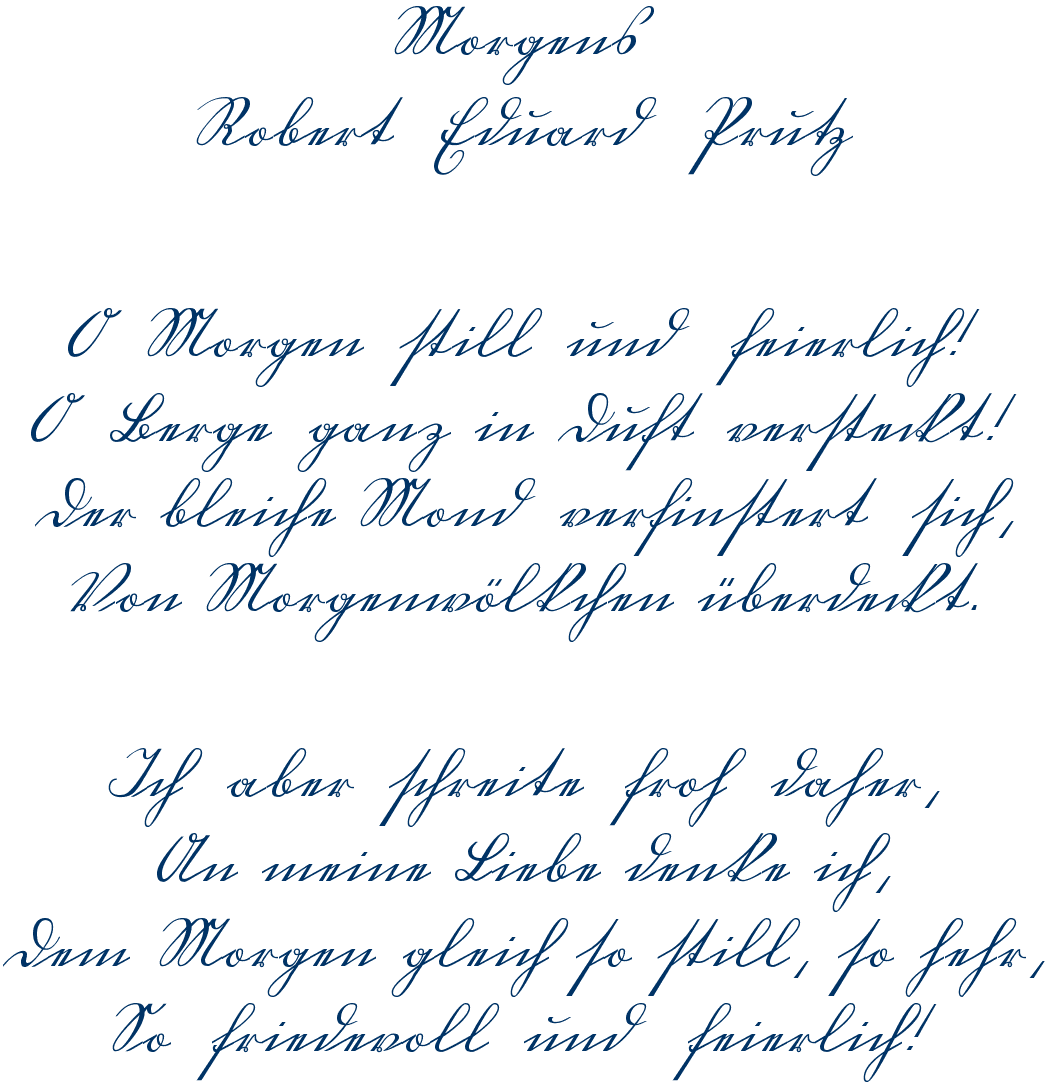 Morgens
Robert Eduard Prutz
O Morgen still und feierlich!
O Berge ganz in Duft versteckt!
Der bleiche Mond verfinstert sich,
Von Morgenwölkchen überdeckt.
Ich aber schreite froh daher,
An meine Liebe denke ich,
Dem Morgen gleich so still, so hehr,
So friedevoll und feierlich!